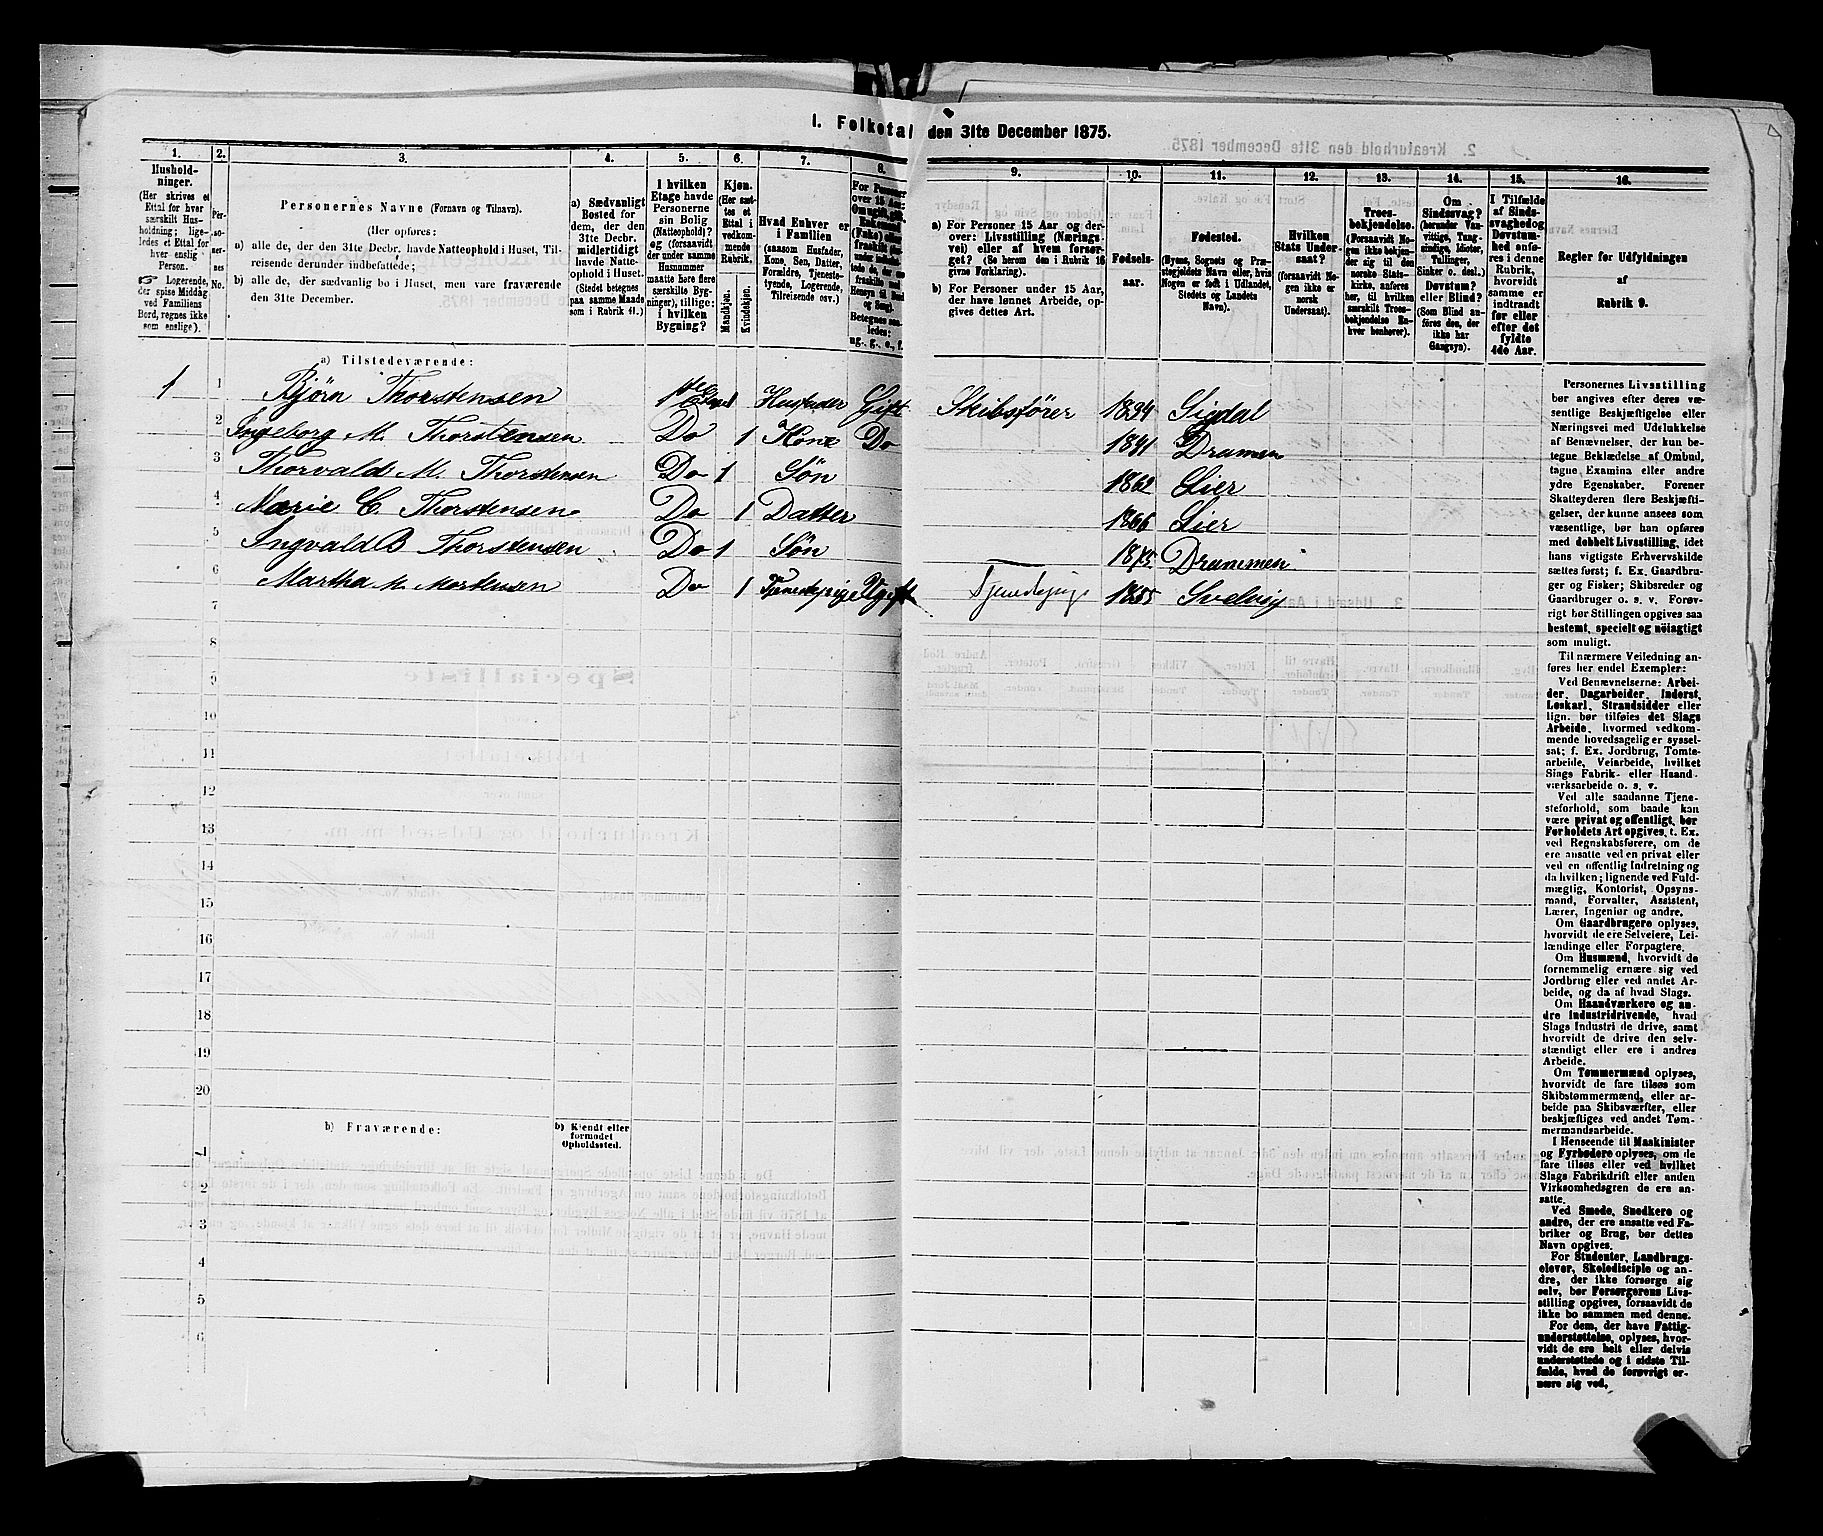 I. Folketal den 31te December 1875.
1. 2. 3. 4. 5. 6. 7. 8. 9. 10. 11. 12. 13. 14. 15. 16.
Husholdninger.
(Her skrives et Ettal for hver særskilt Husholdning; ligeledes et Ettal for hver enslig Person.
Logerende, der spise Middag ved Familiens Bord, regnes ikke som enslige).
Personernes No.
Personernes Navne (Fornavn og Tilnavn).
(Her opføres:
a) alle de, der den 31te Decbr. havde Natteophold i Huset, Tilreisende derunder indbefattede;
b) alle de, der sædvanlig bo i Huset, men vare fraværende den 31te December.
a) Sædvanligt Bosted for dem, der den 31te Decbr. midlertidigt havde Natteophold i Huset.
(Stedet betegnes paa samme Maade som i Rubrik 11.)
I hvilken Etage havde Personerne sin Bolig (Natteophold)? og (forsaavidt der under samme Husnummer maatte høre flere særskilte Bygninger), tillige: i hvilken Bygning?
Kjøn.
(Her sættes et Ettal i vedkommende Rubrik.
Mandkjøn.
Kvindekjøn.
Hvad Enhver er i Familien
(saasom Husfader, Kone, Søn, Datter, Forældre, Tjenestetyende, Logerende, Tilreisende osv.)
For Personer over 15 Aar:
Betegnes saaledes:
ug., g., e., f.
a) For Personer 15 Aar og derover: Livsstilling (Næringsvei) eller af hvem forsørget? (Se herom den i Rubrik 16 givne Forklaring).
b) For Personer under 15 Aar, der have lønnet Arbeide, opgives dettes Art.
Fødselsaar.
Fødested.
(Byens, Sognets og Præstegjeldets Navn eller, hvis Nogen er født i Udlandet, Stedets og Landets Navn).
Hvilken Stats Undersaat?
(forsaavidt Nogen ikke er norsk Undersaat).
Troesbekjendelse.
(Forsaavidt Nogen ikke bekjender sig til den norske Statskirke, anføres her, til hvilken særskilt Troesbekjendelse Enhver benhører).
Om Sindssvag? (herunder Vanvittige, Tungsindige, Idioter, Tullinger, Sinker o. desl.) Døvstum? eller Blind?
(Som Blind anføres den, der ikke har Gangsyn).
I Tilfælde af Sindssvaghed og Døvstumhed anføres i denne Rubrik, hvorvidt samme er indtraadt før eller efter det fyldte 4de Aar.
Regler for Udfyldningen
af
Rubrik 9.
a) Tilstedeværende:
1 1 Bjørn Thorstensen 1ste Etage 1 Husfader Gift Skibsfører 1834 Sigdal
2 Ingeborg M. Thorstensen Do 1 Kone Do 1841 Dramen
3 Thorvald M. Thorstensen Do 1 Søn 1862 Lier
4 Marie C. Thorstensen Do 1 Datter 1866 Lier
5 Ingvald B Thorstensen Do 1 Søn 1875 Drammen
6 Martha M. Mortensen Do 1 Tjenestepige Ugift Tjenestepige 1855 Svelvig
7
8
9
10
11
12
13
14
15
16
17
18
19
20
b) Fraværende:
b) Kjendt eller formodet Opholdssted.
1
2
3
4
5
6
Personernes Livsstilling
bør angives efter deres væ-
sentlige Beskjæftigelse eller
Næringsvei med Udelukkelse
af Benævnelser, der kun be-
tegne Beklædelse af Ombud,
tagne Examina eller andre
ydre Egenskaber. Forener
Skatteyderen flere Beskjæfti-
gelser, der kunne ansees som
væsentlige, bør han opføres
med dobbelt Livsstilling, idet
hans vigtigste Erhvervskilde
sættes først; f. Ex. Gaardbru-
ger og Fisker; Skibsreder og
Gaardbruger o. s. v. Forøv-
rigt bør Stillingen opgives saa
bestemt, specielt og nöiagtigt
som muligt.
Til nærmere Veiledning an-
føres her endel Exempler:
Ved Benævnelserne: Arbei-
der, Dagarbeider, Inderst,
Løskarl, Strandsidder eller
lign. bør tilføies det Slags
Arbeide, hvormed vedkom-
mende hovedsagelig er syssel-
sat; f. Ex. Jordbrug, Tomte-
arbeide, Veiarbeide, hvilket
Slags Fabrik- eller Haand-
værksarbeide o. s. v.
Ved alle saadanne Tjene-
steforhold, som baade kan
være privat og offentligt, bør
Forholdets Art opgives, t. Ex.
ved Regnskabsførere, om de
ere ansatte ved en privat eller
ved en offentlig Indretning og
da hvilken; lignende ved Fuld-
mægtig, Kontorist, Opsyns-
mand, Forvalter, Assistent,
Lærer, Ingeniør og andre.
Om Gaardbrugere oplyses,
hvorvidt de ere Selveiere, Lei-
lændinge eller Forpagtere.
Om Husmænd, hvorvidt de
fornemmelig ernære sig ved
Jordbrug eller ved andet Ar-
beide, og da af hvad Slags.
Om Haandværkere og an-
dre Industridrivende, hvad
Slags Industri de drive, samt
hvorvidt de drive den selv-
stændigt eller ere i andres
Arbeide.
Om Tømmermænd oplyses,
hvorvidt de fare tilsøs som
Skibstømmermænd, eller ar-
beide paa Skibsværfter, eller
beskjæftiges ved andet Tøm-
mermandsarbeide.
I Henseende til Maskinister
og Fyrbødere oplyses, om de
fare tilsøs eller ved hvilket
Slags Fabrikdrift eller anden
Virksomhedsgren de ere an-
satte.
Ved Smede, Snedkere og
andre, der ere ansatte ved Fa-
briker og Brug, bør dettes
Navn opgives.
For Studenter, Landbrugs-
elever, Skoledisciple og an-
dre, der ikke forsørge sig
selv, bør Forsørgerens Livs-
stilling opgives, forsaavidt de
ikke bo sammen med denne.
For dem, der have Fattig-
understøttelse, oplyses, hvor-
vidt de ere helt eller delvis
understøttede og i sidste Til-
fælde, hvad de forøvrigt er-
nære sig ved.